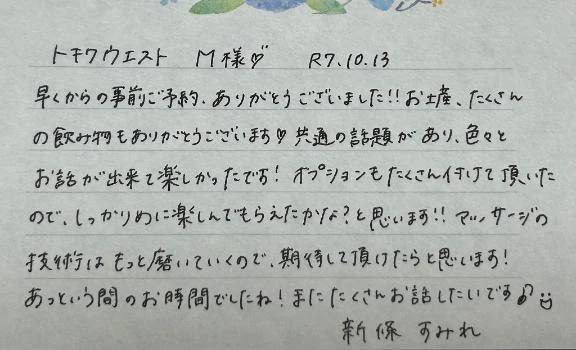 トキワウエスト M様♡ R7.10.13
早くからの事前ご予約、ありがとうございました!!お土産、たくさん
の飲み物もありがとうございます♡共通の話題があり、色々と
お話が出来て楽しかったです!オプションもたくさん付けて頂いた
ので、しっかりめに楽しんでもらえたかな?と思います!!マッサージの
技術はもっと磨いていくので、期待して頂けたらと思います!
あっという間のお時間でしたね!またたくさんお話したいです♪☺
新條 すみれ